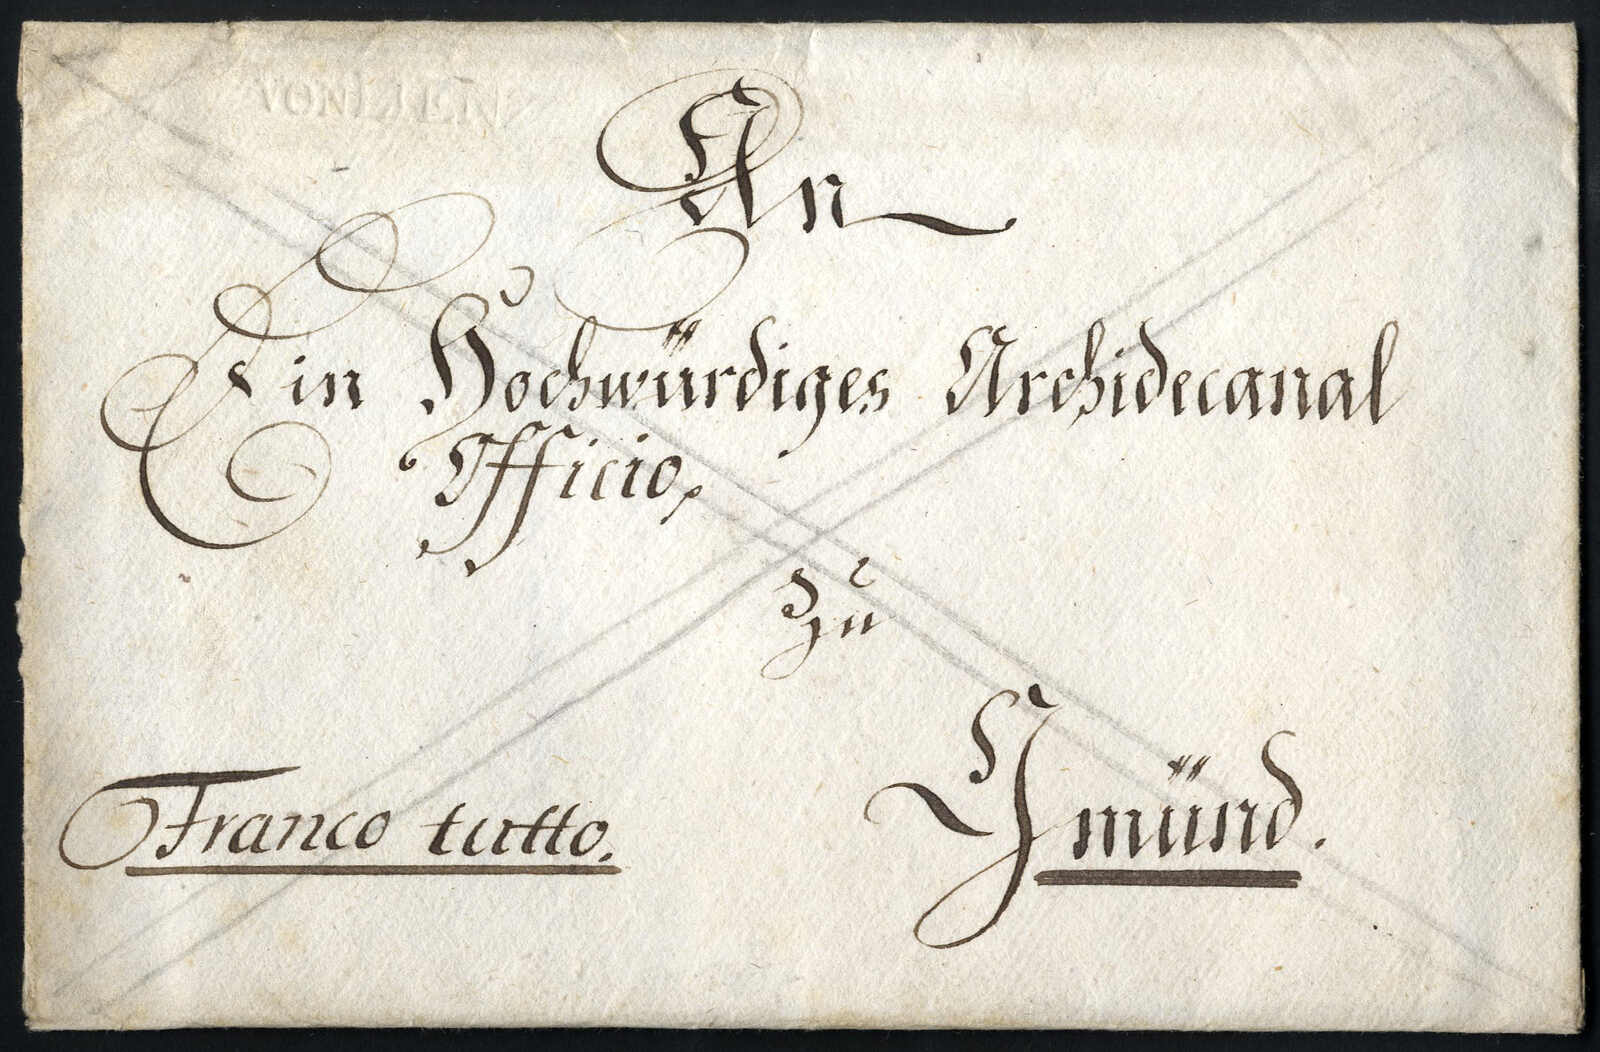 VON LIENZ
An
Ein Hochwürdiges Archidecanal
Officio,
zu
Gmünd.
Franco tutto.